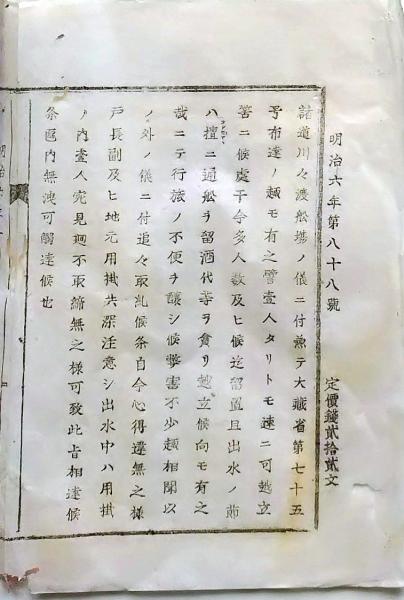 明治六年第八十八號
定價錢貳拾貳文
諸道川々渡船場ノ儀ニ付兼テ大藏省第七十五
号布達ノ趣モ有之譬壹人タリトモ速ニ可越立
筈ニ候处于今多人数及ヒ候迄留置且出水ノ節
ハ擅ニ通船ヲ留酒代等ヲ貪リ越立候向モ有之
哉ニテ行旅ノ不便ヲ醸シ候弊害不少趣相聞以
ノ外ノ儀ニ付追々取糺候条自今心得違無之様
戸長副及ヒ地元用掛共深注意シ出水中ハ用掛
ノ内壹人宛見廻不取締無之様可致此旨相達候
条區内無洩可觸達候也